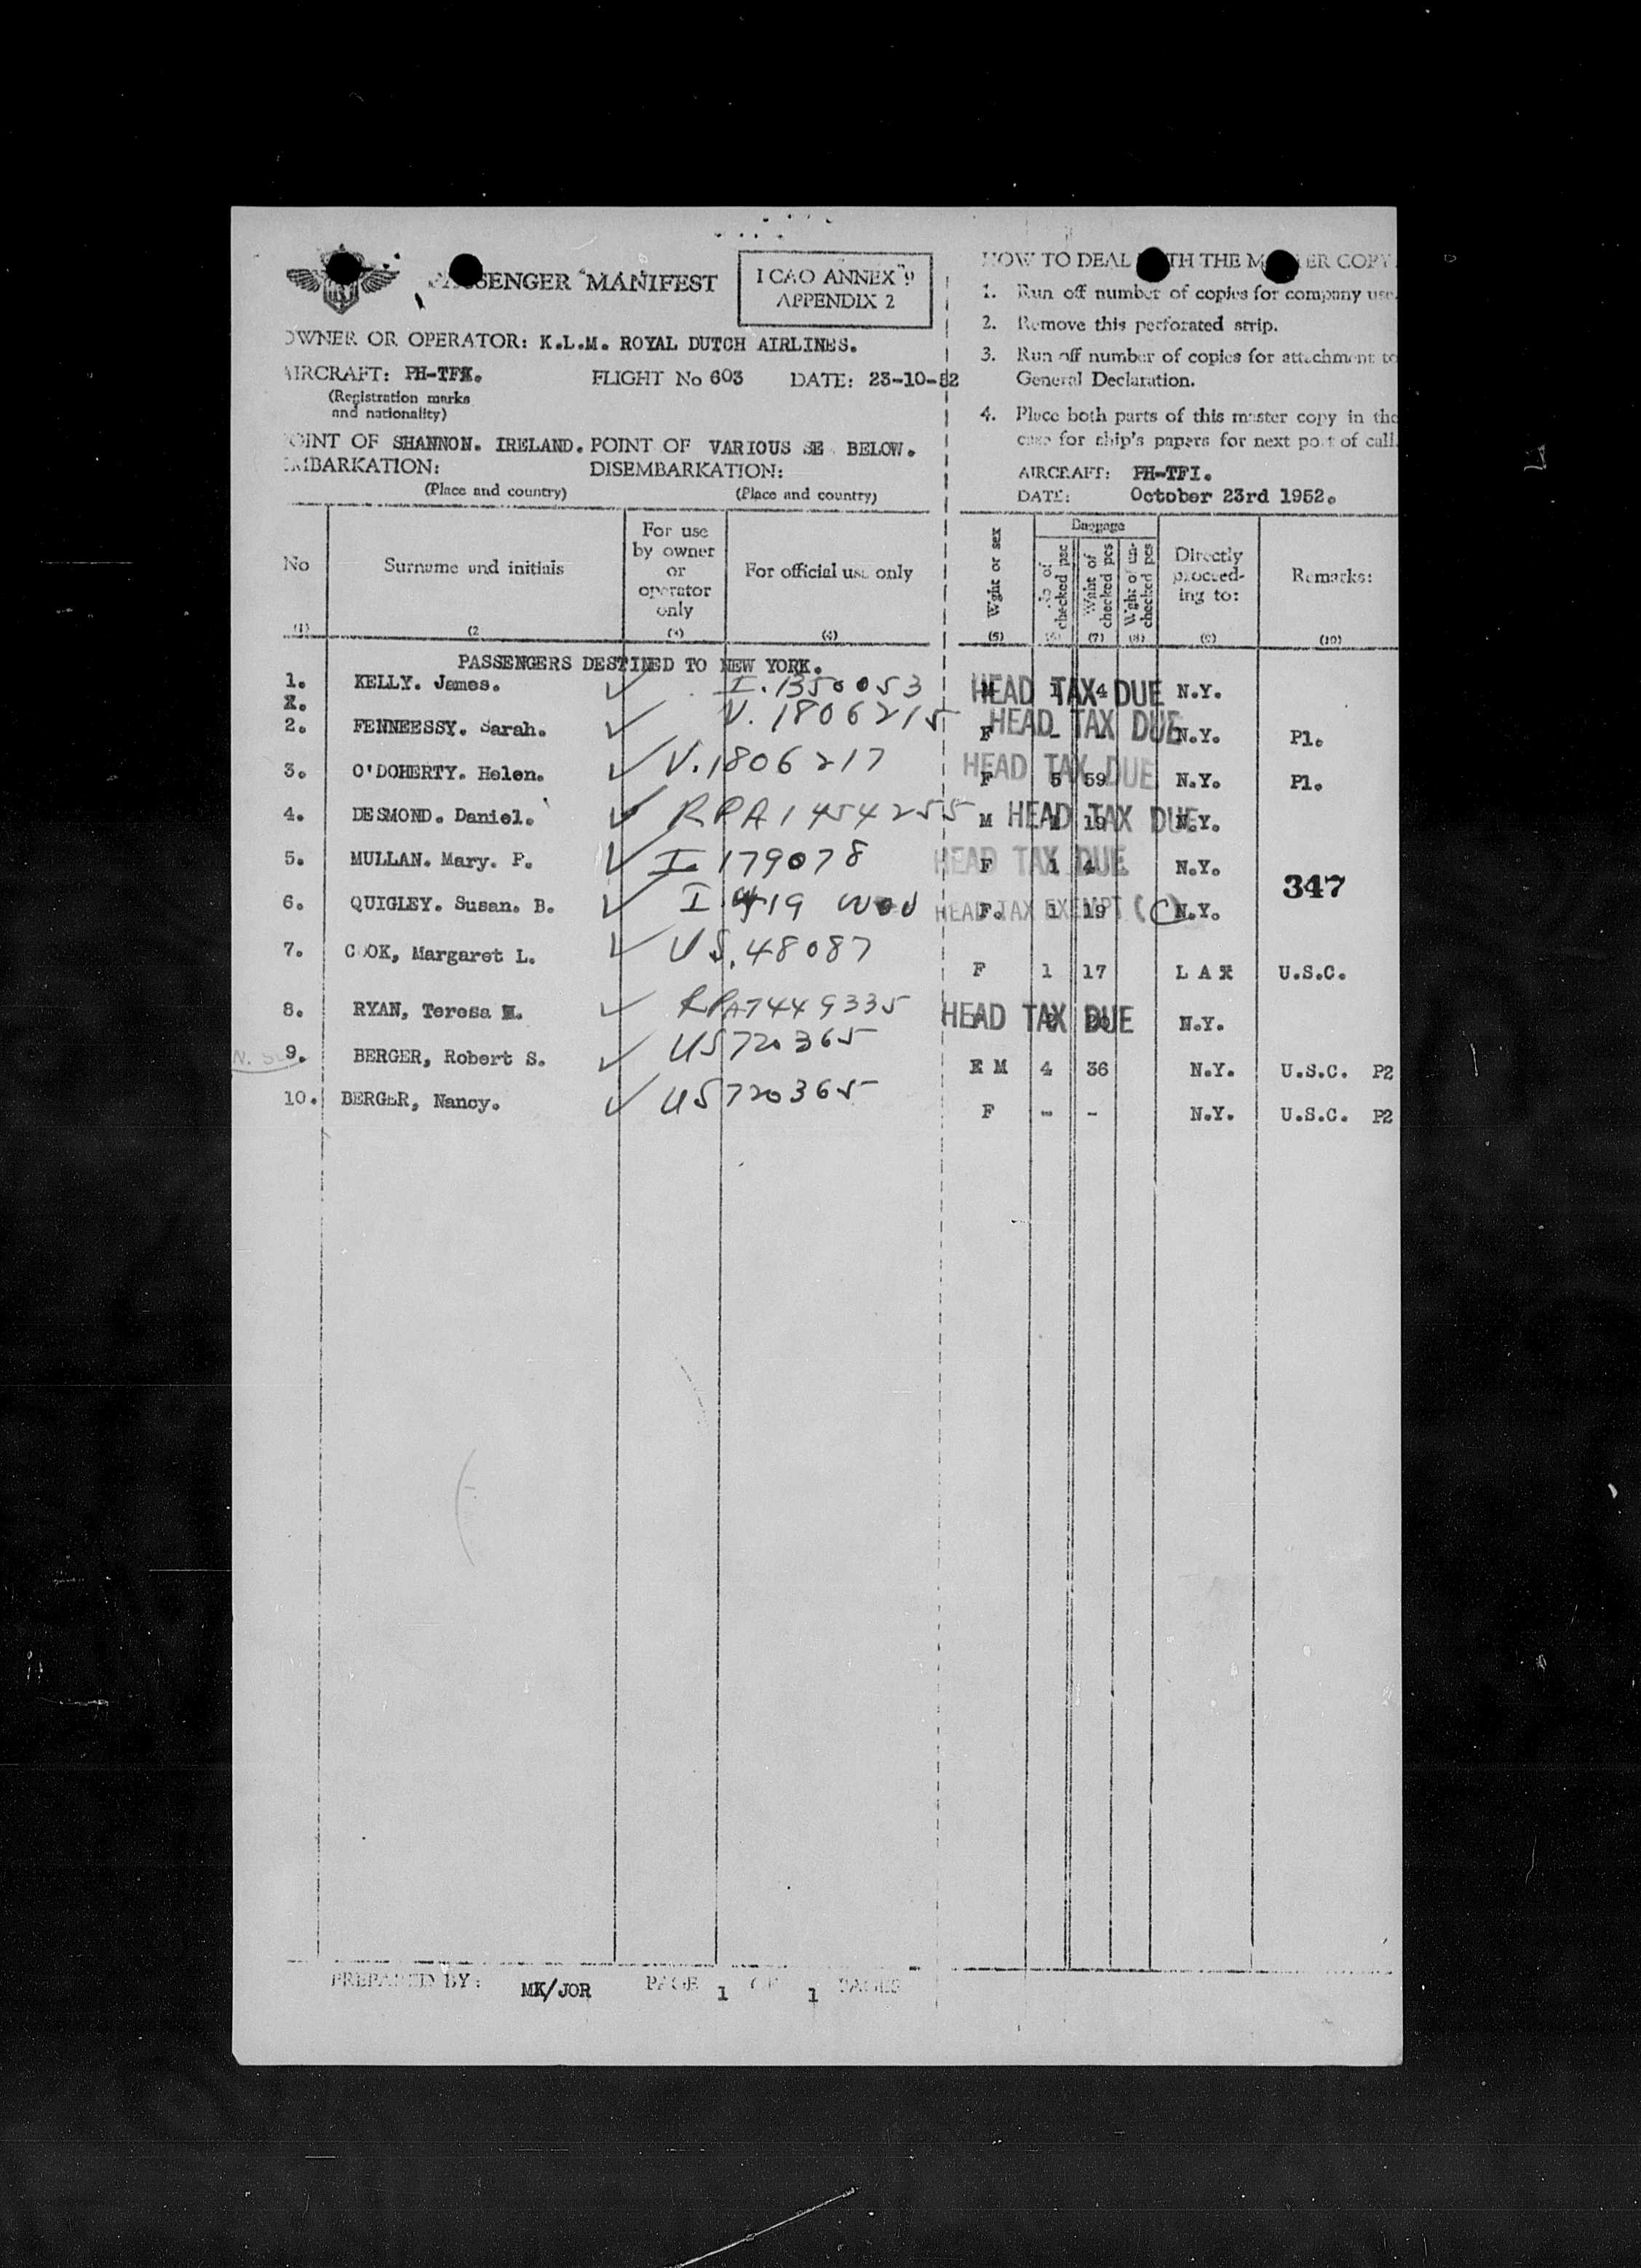 PASSENGER MANIFEST
I CAO ANNEX 9
APPENDIX 2
OWNER OR OPERATOR: K.L.M. ROYAL DUTCH AIRLINES.
AIRCRAFT: PH-TFI. FLIGHT No 603 DATE: 23-10-52
(Registration marks
and nationality)
POINT OF SHANNON. IRELAND. POINT OF VARIOUS SE BELOW.
EMBARKATION: DISEMBARKATION:
(Place and country) (Place and country)
HOW TO DEAL WITH THE MASTER COPY
1. Run off number of copies for company use.
2. Remove this perforated strip.
3. Run off number of copies for attachment to
General Declaration.
4. Place both parts of this master copy in the
case for ship's papers for next port of call.
AIRCRAFT: PH-TFI.
DATE: October 23rd 1952.
No Surname and initials For use by owner or operator only For official use only Wght or sex Baggage No of checked psc Wght of checked pcs Wght of un-checked pcs Directly proceed-ing to: Remarks:
(1) (2 (3) (4) (5) (6) (7) (8) (9) (10)
PASSENGERS DESTINED TO NEW YORK.
1. KELLY. James. ✓ I. 1350053 M 1 4 HEAD TAX DUE N.Y.
2. FENNEESSY. Sarah. ✓ V. 1806215 F - - HEAD TAX DUE N.Y. P1.
3. O'DOHERTY. Helen. ✓ V. 1806217 F 5 59 HEAD TAX DUE N.Y. P1.
4. DESMOND. Daniel. ✓ RPA 1454255 M 19 HEAD TAX DUE N.Y.
5. MULLAN. Mary. P. ✓ I. 179078 F 1 4 HEAD TAX DUE N.Y.
347
6. QUIGLEY. Susan. B. ✓ I. 419 F. 1 19 HEAD TAX EXEMPT (C) N.Y.
7. COOK, Margaret L. ✓ US. 48087 F 1 17 L A X U.S.C.
8. RYAN, Teresa M. ✓ RPA7449335 HEAD TAX DUE N.Y.
9. BERGER, Robert S. ✓ US720365 M 4 36 N.Y. U.S.C. P2
10. BERGER, Nancy. ✓ US720365 F - - N.Y. U.S.C. P2
PREPARED BY: MK/JOR PAGE 1 OF 1 PAGES